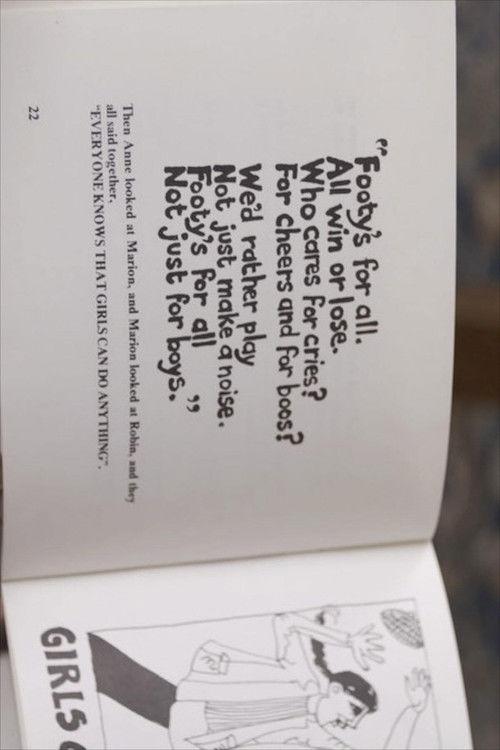 “Footy's for all.
All win or lose.
Who cares for cries?
For cheers and for boos?
We'd rather play
Not just make a noise.
Footy's for all
Not just for boys.”
Then Anne looked at Marion, and Marion looked at Robin, and they
all said together,
“EVERYONE KNOWS THAT GIRLS CAN DO ANYTHING”.
22
GIRLS